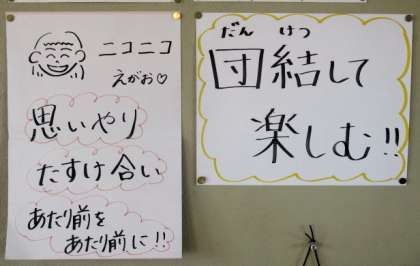 ニコニコ
えがお♡
思いやり
たすけ合い
あたり前を
あたり前に!!
だんけつ
団結して
楽しむ!!